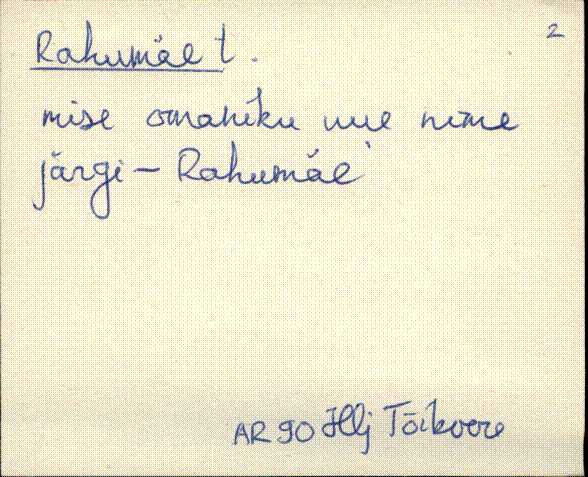 2
Rahumäe t.
mise omaniku uue nime
järgi – Rahumäe
AR 90 Hlj Tõikvere